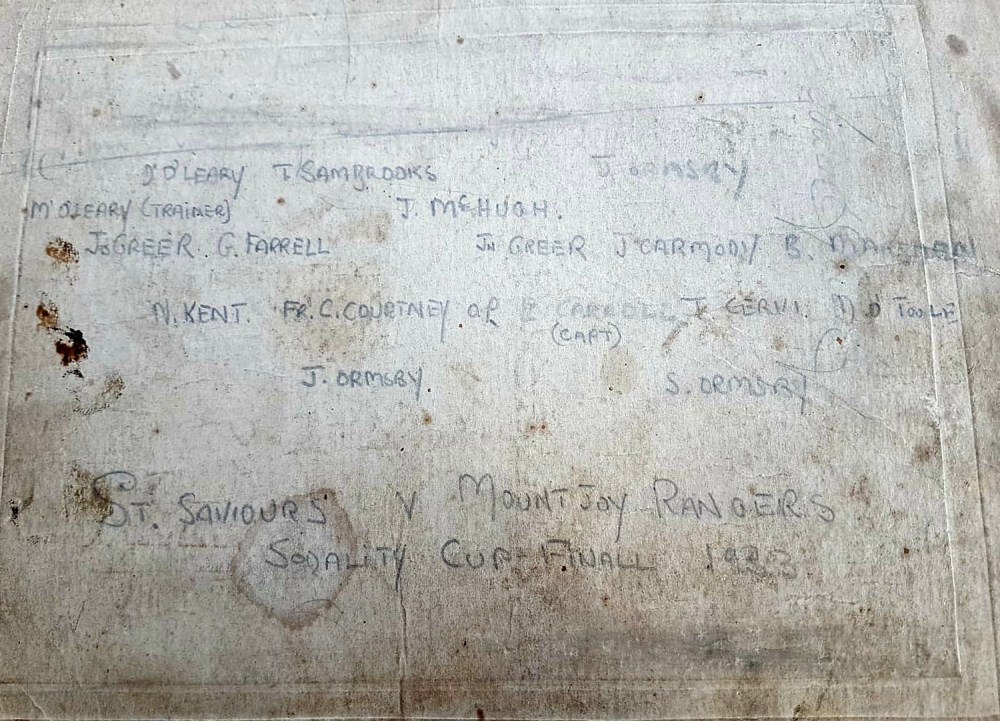 D O'LEARY T SAMBROOKS J. ORMSBY
M O'LEARY (TRAINER) J. McHUGH.
Js GREER. G. FARRELL Jn GREER J CARMODY B.
N. KENT. FR. C. COURTNEY OP CARROLL J. CERVI. D O'TOOLE
(CAPT)
J. ORMSBY. S. ORMSBY
ST. SAVIOURS V MOUNTJOY RANGERS
SODALITY CUP FINALL 1923